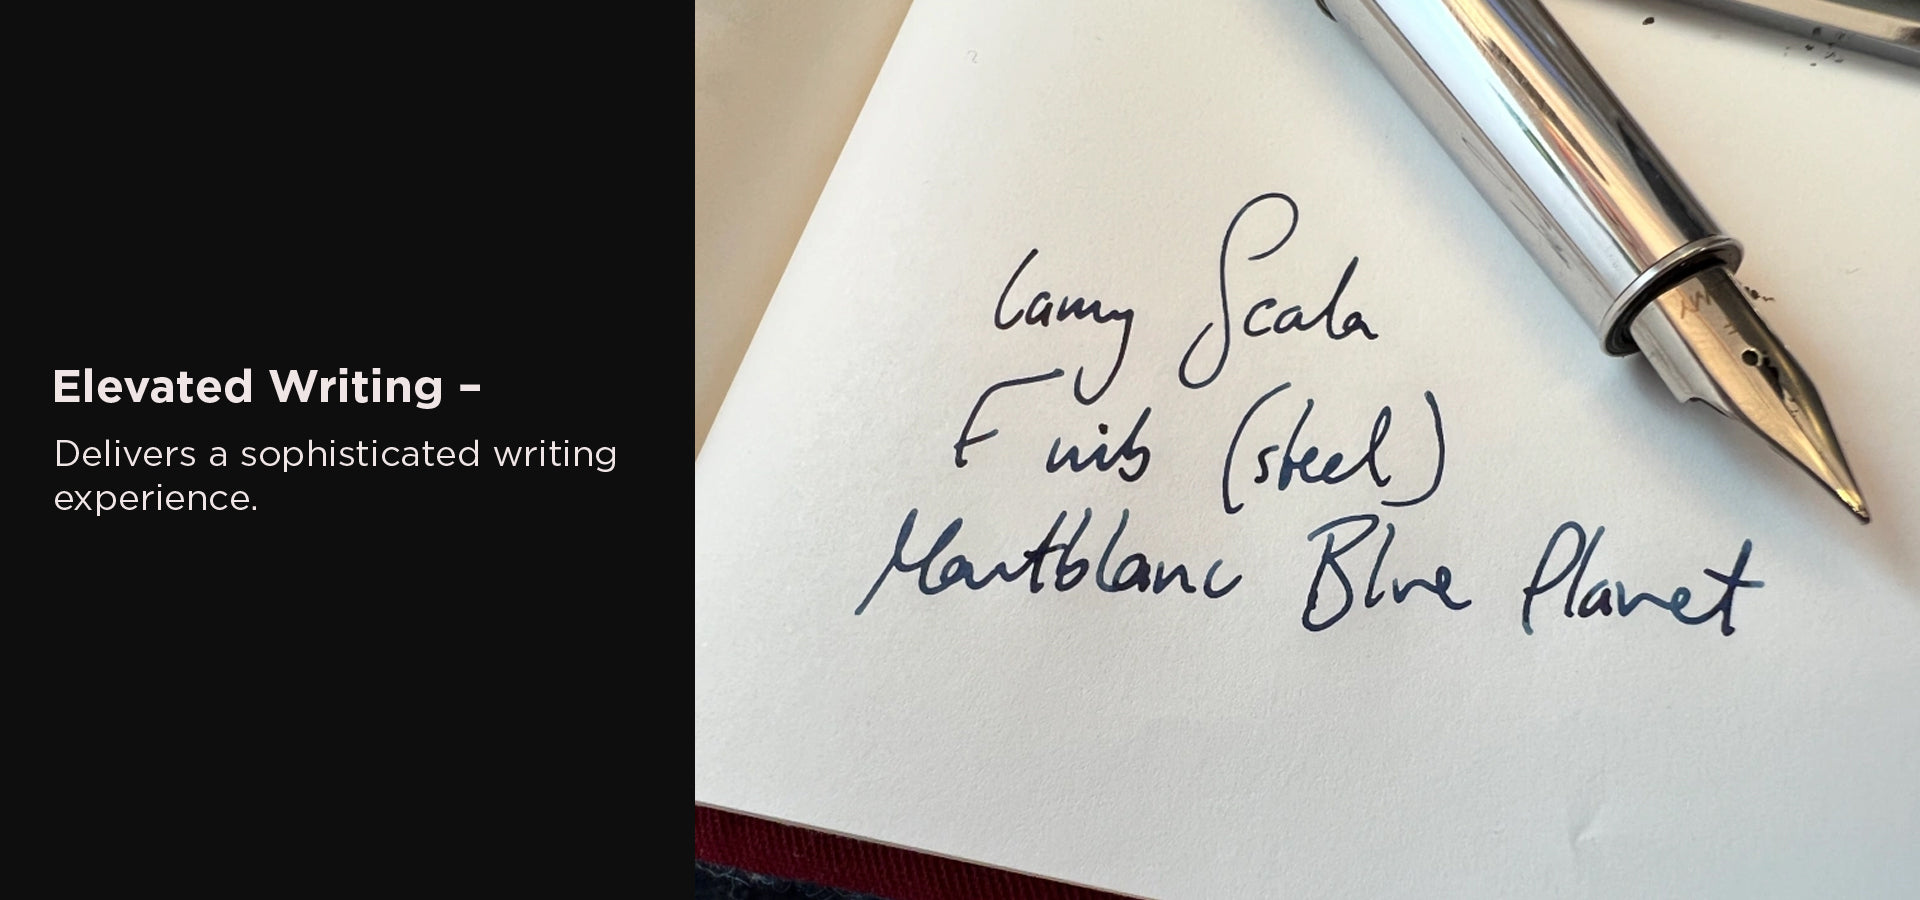 Elevated Writing –
Delivers a sophisticated writing
experience.
Lamy Scala
F nib (steel)
Montblanc Blue Planet